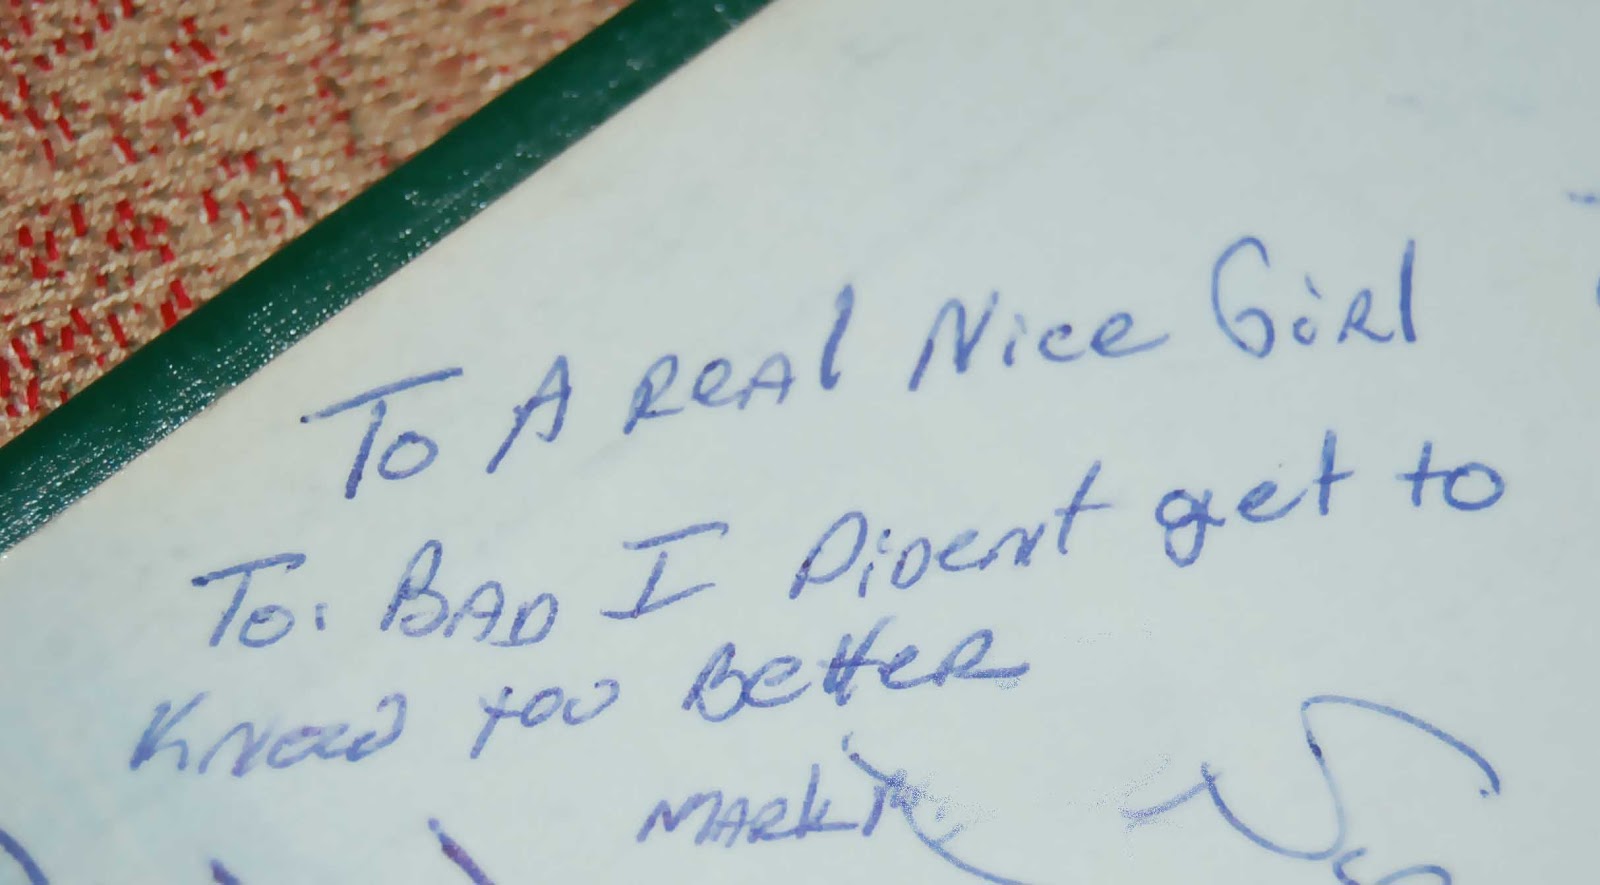 To A ReAl Nice GiRl
To. BAD I DiDent get to
Know You BetteR
MARK